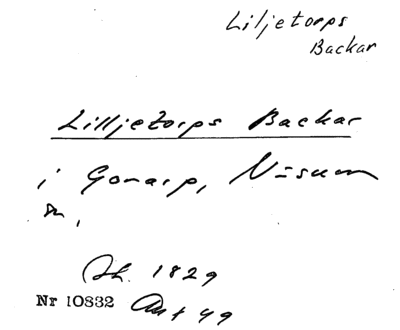 Liljetorps
Backar
Lilljetorps Backar
i Gonarp, N=sum
sn,
Sk. 1829
Nr 10832 Ant 49